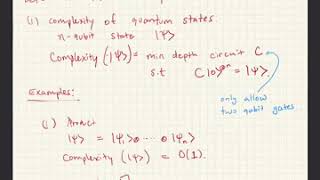 (1) complexity of quantum states.
n-qubit state |ψ>
Complexity (|ψ>) = min depth circuit C
s.t C|0>^⊗n = |ψ>.
only allow
two qubit gates.
Examples:
(1) Product
|ψ> = |ψ₁> ⊗ ... ⊗ |ψₙ>
Complexity (|ψ>) = O(1).